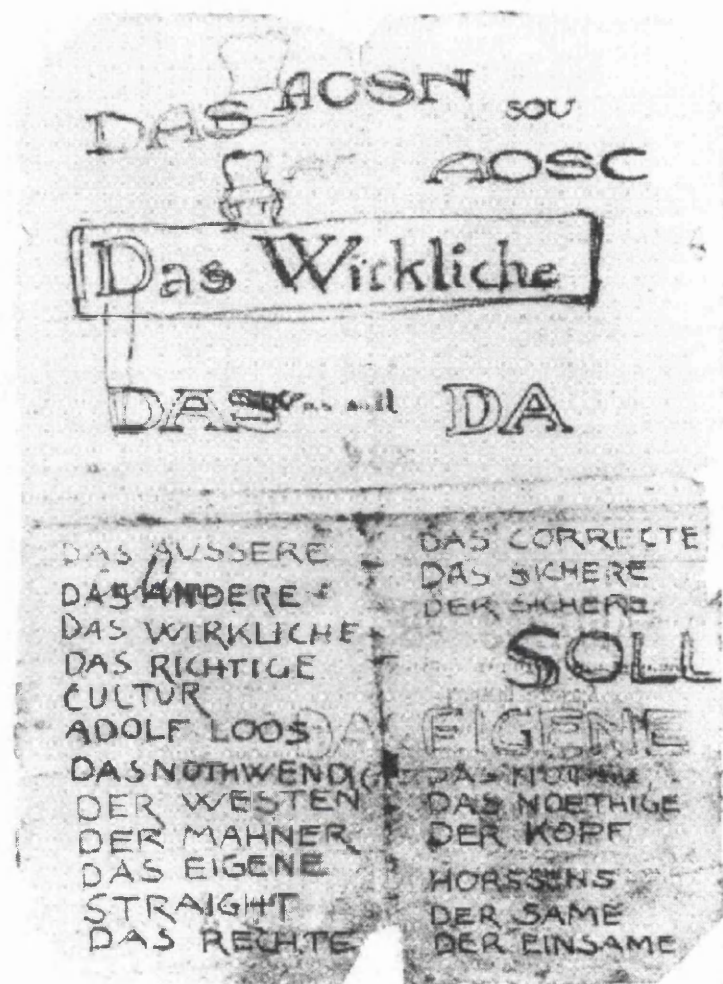 DAS AOSN
SOU
AOSC
Das Wirkliche
DAS
DA
DAS ÄUSSERE
DAS ANDERE
DAS WIRKLICHE
DAS RICHTIGE
CULTUR
ADOLF LOOS
DAS NOTHWENDIGE
DER WESTEN
DER MAHNER
DAS EIGENE
STRAIGHT
DAS RECHTE
DAS CORRECTE
DAS SICHERE
DER SICHERE
SOLL
DAS EIGENE
DAS NOETHIGE
DER KOPF
HORSSENS
DER SAME
DER EINSAME